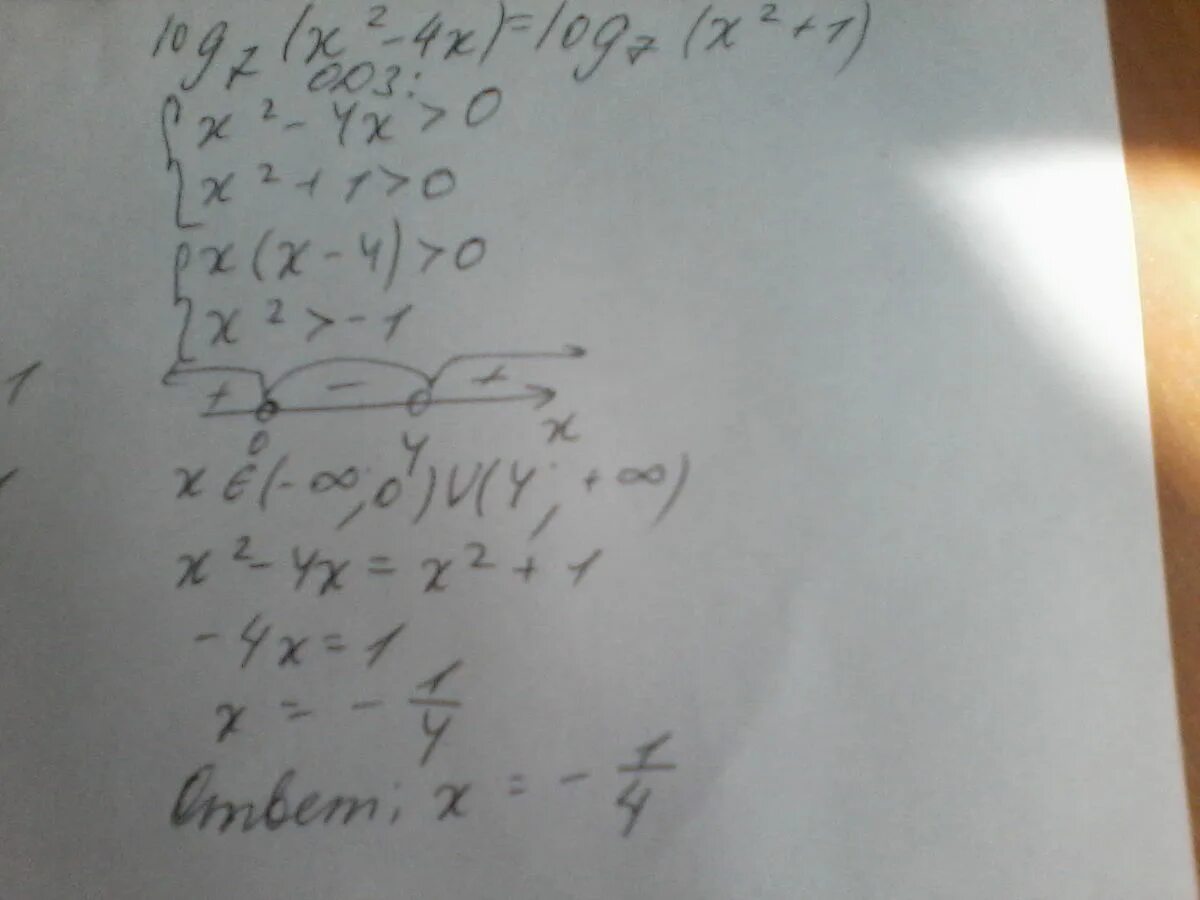 log₇(x²-4x)=log₇(x²+1)
ОДЗ:
x²-4x>0
x²+1>0
x(x-4)>0
x²>-1
1
+ - +
0 4 x
x∈(-∞;0)∪(4;+∞)
x²-4x=x²+1
-4x=1
x=-1/4
Ответ; x=-1/4